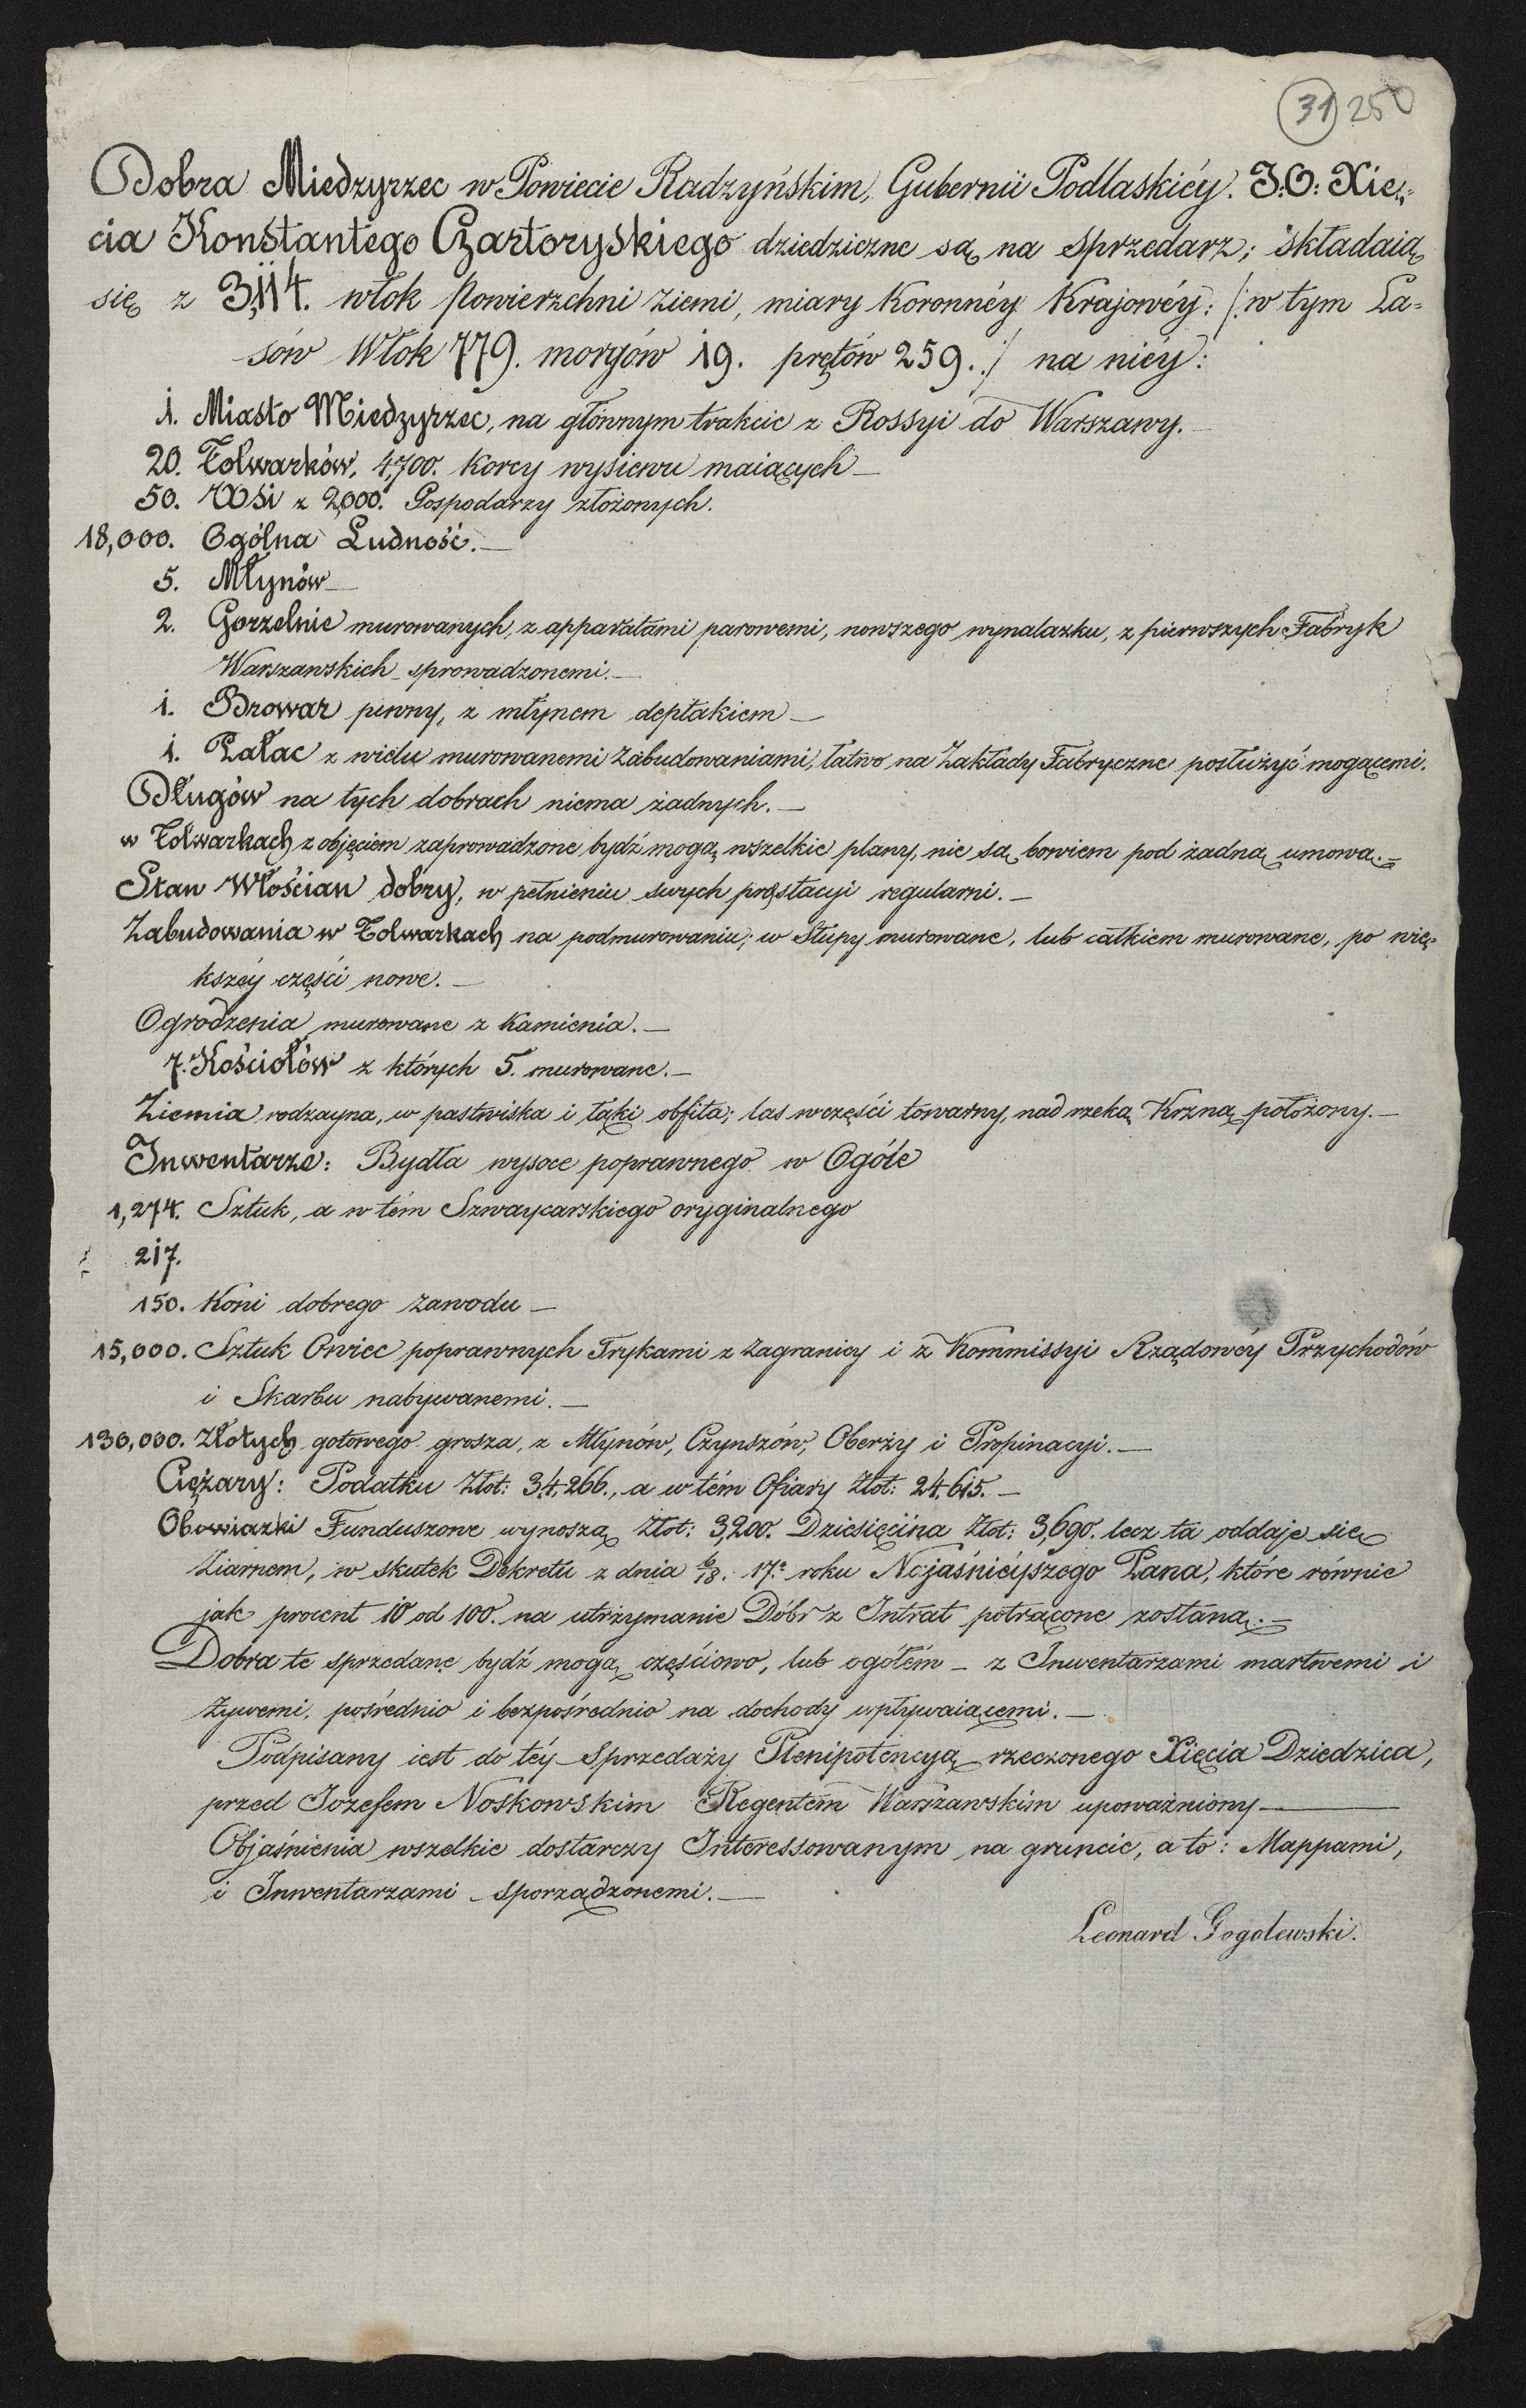 31 250
Dobra Miedzyrzec w Powiecie Radzyńskim, Gubernii Podlaskiéy. J:O: Xię=
cia Konstantego Czartoryskiego dziedziczne są na sprzedarz; składaią
się z 3,114. włok powierzchni ziemi, miary Koronnéy Krajowéy: /: w tym La=
sów Włok 779. morgów 19. prętów 259. :/ na niéy:
1. Miasto Miedzyrzec, na głównym trakcie z Rossyi do Warszawy. —
20. Folwarków, 4,700. Korcy wysiewu maiących —
50. Wsi z 2,000. Gospodarzy złożonych.
18,000. Ogólna Ludność. —
5. Młynów —
2. Gorzelnie murowanych, z apparatami parowemi, nowszego wynalazku, z pierwszych Fabryk
Warszawskich sprowadzonemi. —
1. Browar piwny, z młynem deptakiem —
1. Pałac z wielu murowanemi zabudowaniami, łatwo na Zakłady Fabryczne posłużyć mogącemi.
Długów na tych dobrach niema żadnych. —
w Folwarkach z objęciem zaprowadzone bydź mogą wszelkie plany, nie są bowiem pod żadną umową. —
Stan Włościan dobry, w pełnieniu swych prestacyi regularni. —
Zabudowania w Folwarkach na podmurowaniu; w słupy murowane, lub całkiem murowane, po wię=
kszéy części nowe. —
Ogrodzenia murowane z Kamienia. —
7. Kościołów z których 5. murowane. —
Ziemia rodzayna, w pastwiska i łąki obfita; las w części towarny, nad rzeką Krzną położony. —
Inwentarze: Bydła wysoce poprawnego w Ogóle
1,274. Sztuk, a w tém Szwaycarskiego oryginalnego
217.
150. Koni dobrego zawodu —
15,000. Sztuk Owiec poprawnych Trykami z zagranicy i z Kommissyi Rządowéy Przychodów
i Skarbu nabywanemi. —
130,000. Złotych gotowego grosza, z Młynów, Czynszów, Oberży i Propinacyi. —
Ciężary: Podatku Złot: 34,266., a w tém Ofiary Złot: 24,615. —
Obowiazki Funduszowe wynoszą Złot: 3,200. Dziesięcina Złot: 3,690. lecz ta oddaje się
Ziarnem, w skutek Dekretu z dnia 6/18. 17.º roku Najaśniéyszego Pana, które równie
jak procent 10 od 100. na utrzymanie Dóbr z Intrat potrącone zostaną. —
Dobra te sprzedane bydź mogą częściowo, lub ogółém — z Inwentarzami martwemi i
żywemi, pośrednio i bezpośrednio na dochody wpływaiącemi. —
Podpisany iest do téy Sprzedaży Plenipotencyą rzeczonego Xięcia Dziedzica,
przed Jozefem Noskowskim Regentem Warszawskim upoważniony —
Objaśnienia wszelkie dostarczy Interessowanym na gruncie, a to: Mappami,
i Inwentarzami sporządzonemi. —
Leonard Gogolewski.